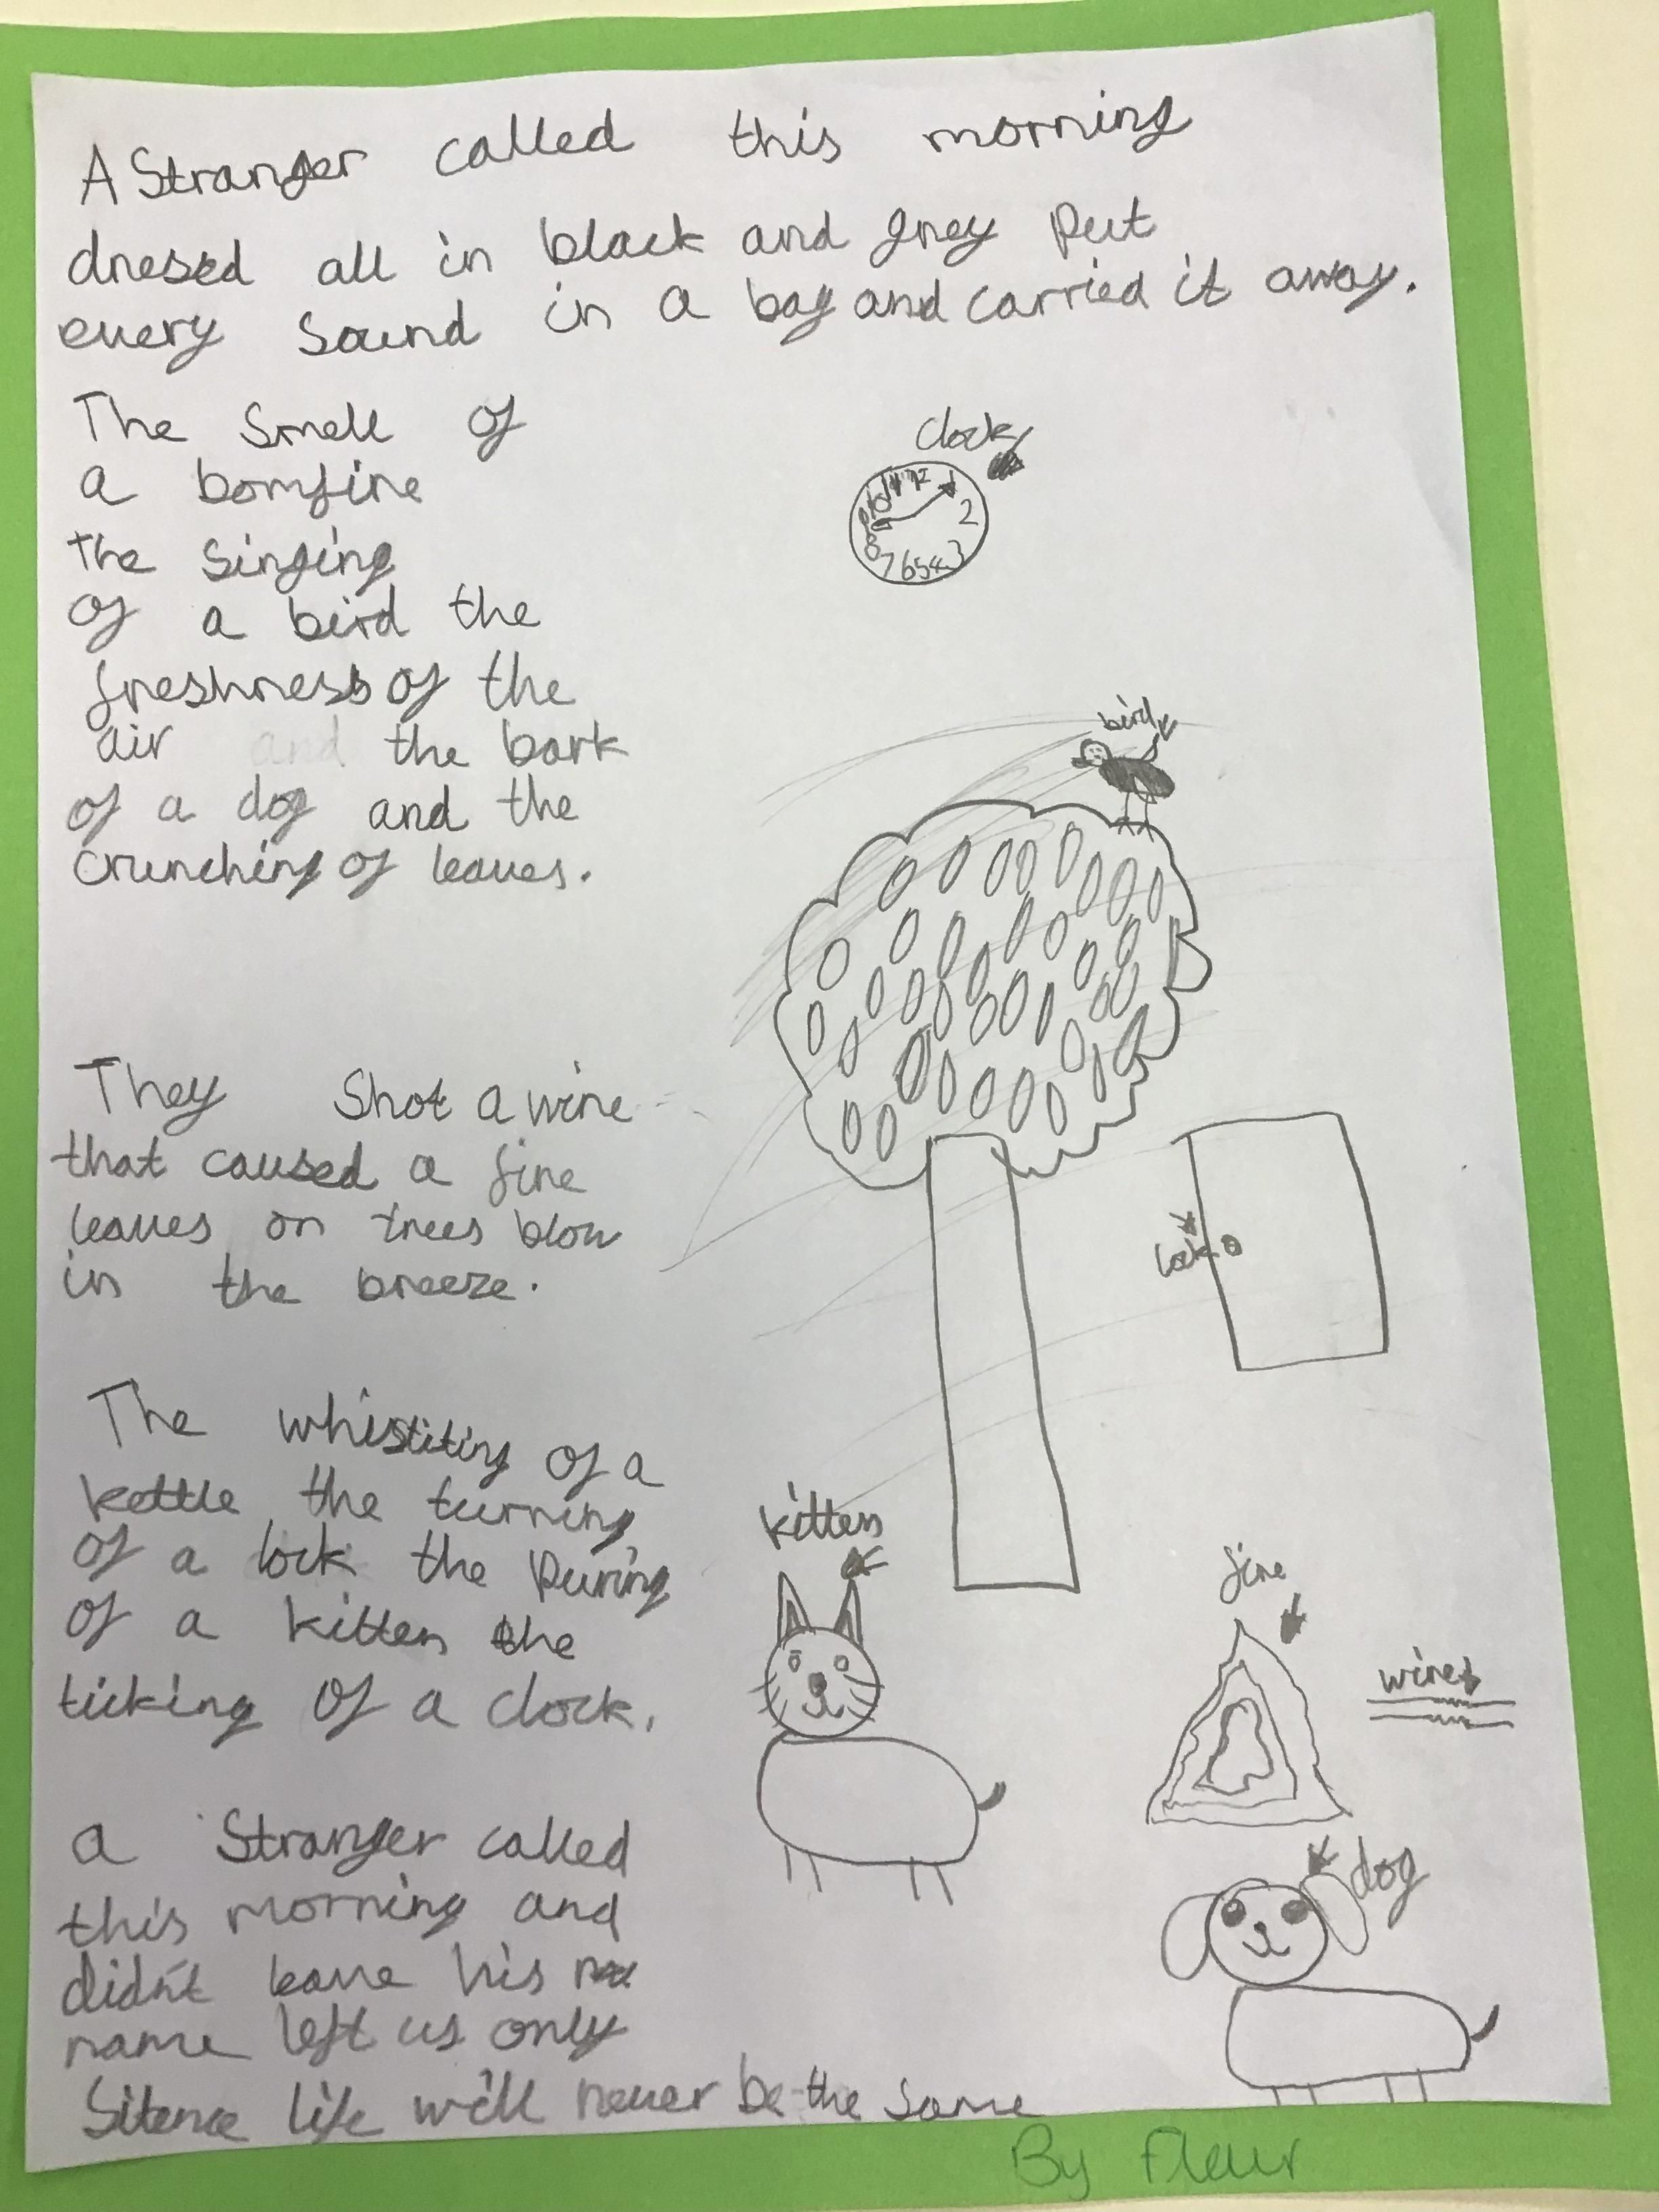 A Stranger called this morning
dressed all in black and grey put
every sound in a bag and carried it away.
The Smell of
a bomfire
the singing
of a bird the
freshness of the
air and the bark
of a dog and the
crunching of leaves.
They Shot a wire
that caused a fire
leaves on trees blow
in the breeze.
The whistiting of a
kettle the turning
of a lock the puring
of a kitten the
ticking of a clock.
a Stranger called
this morning and
didn't leave his
name left us only
Silence life will never be the same
By Fleur
clock
bird
lock
kitten
fire
wire
dog
12
2
3
4
5
6
7
8